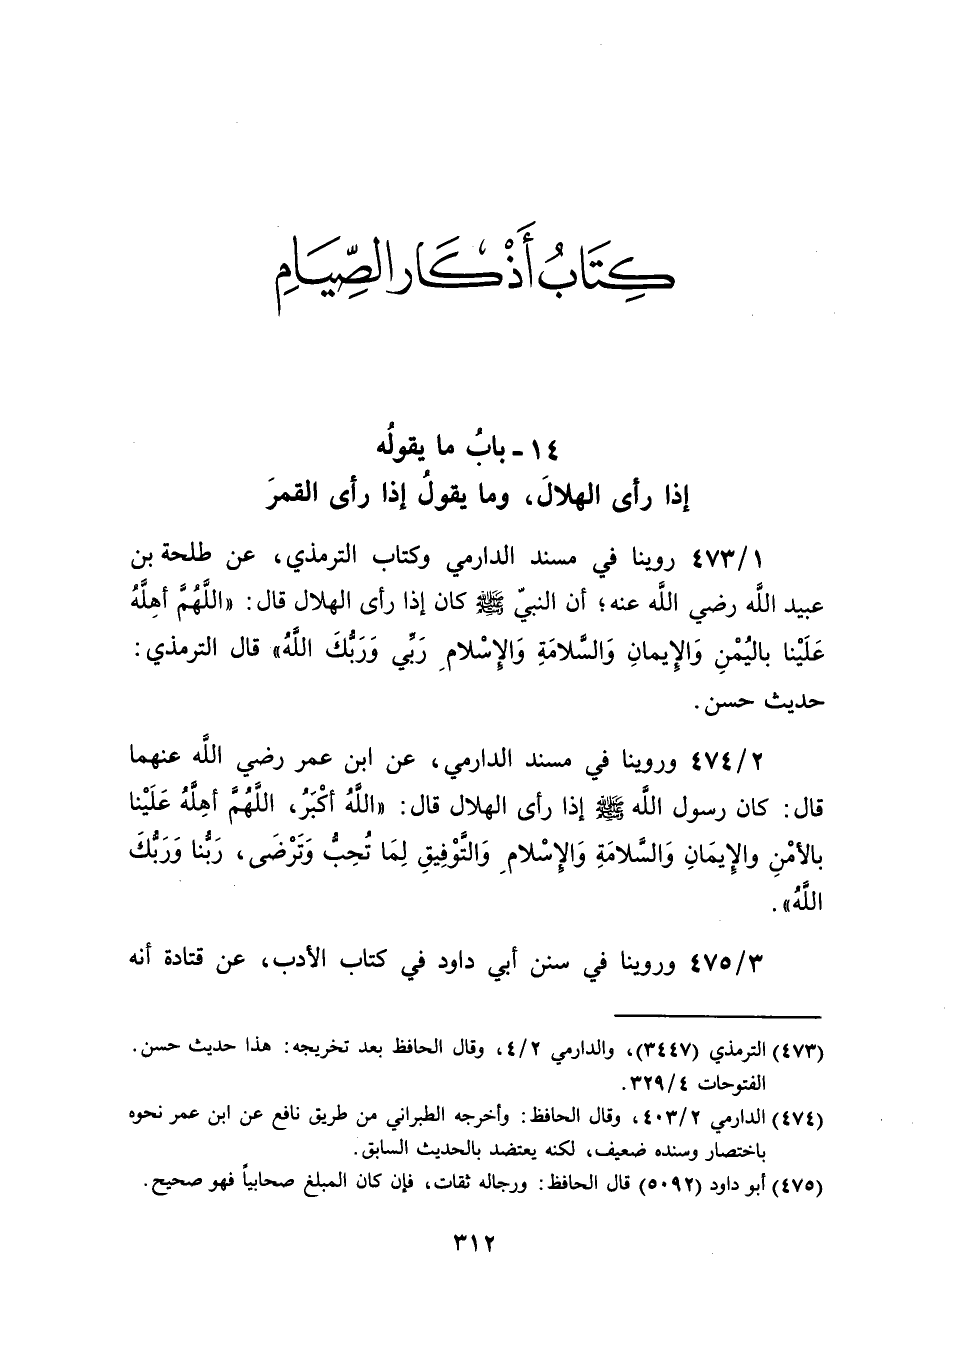 كِتَابُ أَذْكَارِ الصِّيَامِ
١٤ - بابُ ما يقولُه
إذا رأى الهلالَ، وما يقولُ إذا رأى القمرَ
٤٧٣/١ روينا في مسند الدارمي وكتاب الترمذي، عن طلحة بن
عبيد اللَّه رضي اللَّه عنه؛ أن النبيّ ﷺ كان إذا رأى الهلال قال: «اللَّهُمَّ أهِلَّهُ
عَلَيْنا باليُمْنِ وَالإِيمانِ وَالسَّلامَةِ وَالإِسْلامِ رَبِّي وَرَبُّكَ اللَّهُ» قال الترمذي:
حديث حسن.
٤٧٤/٢ وروينا في مسند الدارمي، عن ابن عمر رضي اللَّه عنهما
قال: كان رسول اللَّه ﷺ إذا رأى الهلال قال: «اللَّهُ أكْبَرُ، اللَّهُمَّ أهِلَّهُ عَلَيْنا
بالأمْنِ والإِيمَانِ وَالسَّلامَةِ وَالإِسْلامِ وَالتَّوْفِيقِ لِمَا تُحِبُّ وَتَرْضَى، رَبُّنا وَرَبُّكَ
اللَّهُ».
٤٧٥/٣ وروينا في سنن أبي داود في كتاب الأدب، عن قتادة أنه
(٤٧٣) الترمذي (٣٤٤٧)، والدارمي ٤/٢، وقال الحافظ بعد تخريجه: هذا حديث حسن.
الفتوحات ٣٢٩/٤.
(٤٧٤) الدارمي ٤٠٣/٢، وقال الحافظ: وأخرجه الطبراني من طريق نافع عن ابن عمر نحوه
باختصار وسنده ضعيف، لكنه يعتضد بالحديث السابق.
(٤٧٥) أبو داود (٥٠٩٢) قال الحافظ: ورجاله ثقات، فإن كان المبلغ صحابياً فهو صحيح.
٣١٢